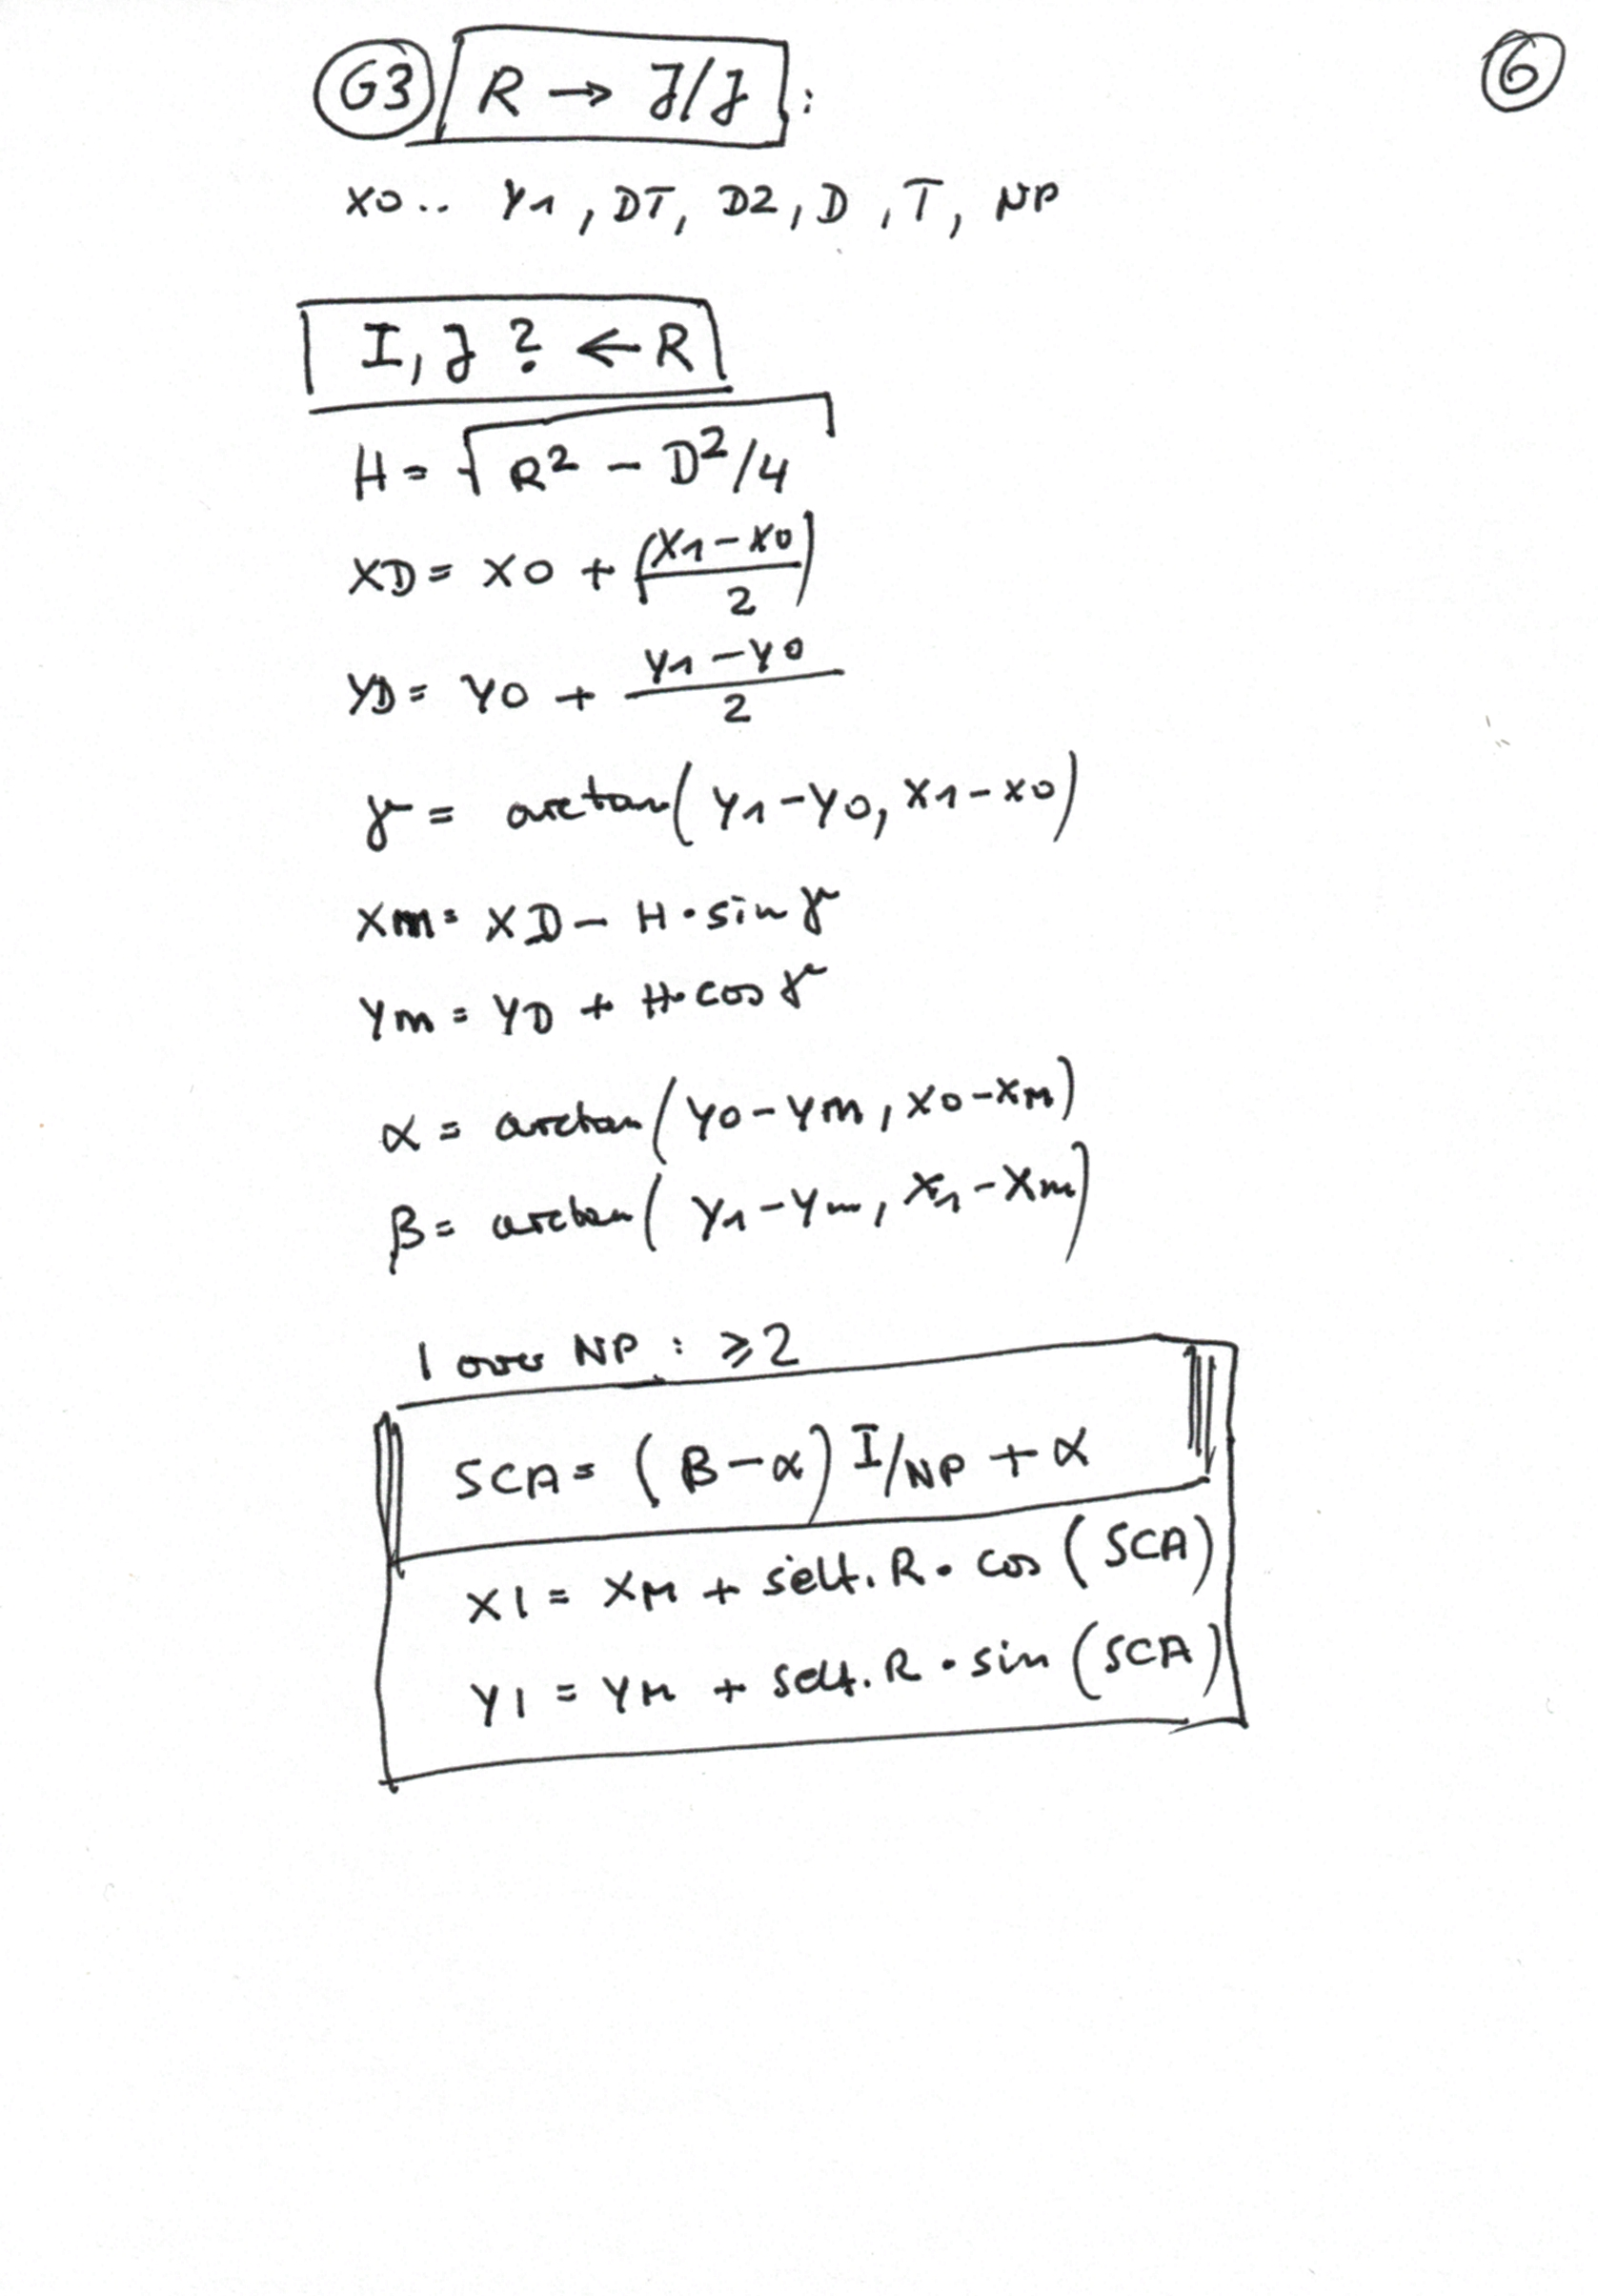 G3 R → J/J :
6
X0.. Y1, DT, D2, D, T, NP
I, J ? ← R
H = √(R² - D²/4)
XD = X0 + (X1-X0)/2
YD = Y0 + (Y1-Y0)/2
γ = arctan(Y1-Y0, X1-X0)
Xm = XD - H·sin γ
Ym = YD + H·cos γ
α = arctan(Y0-Ym, X0-XM)
β = arctan(Y1-Ym, X1-Xm)
I over NP : ⩾2
SCA = (β-α) I/NP + α
XI = XM + self.R · cos (SCA)
YI = YM + self.R · sin (SCA)